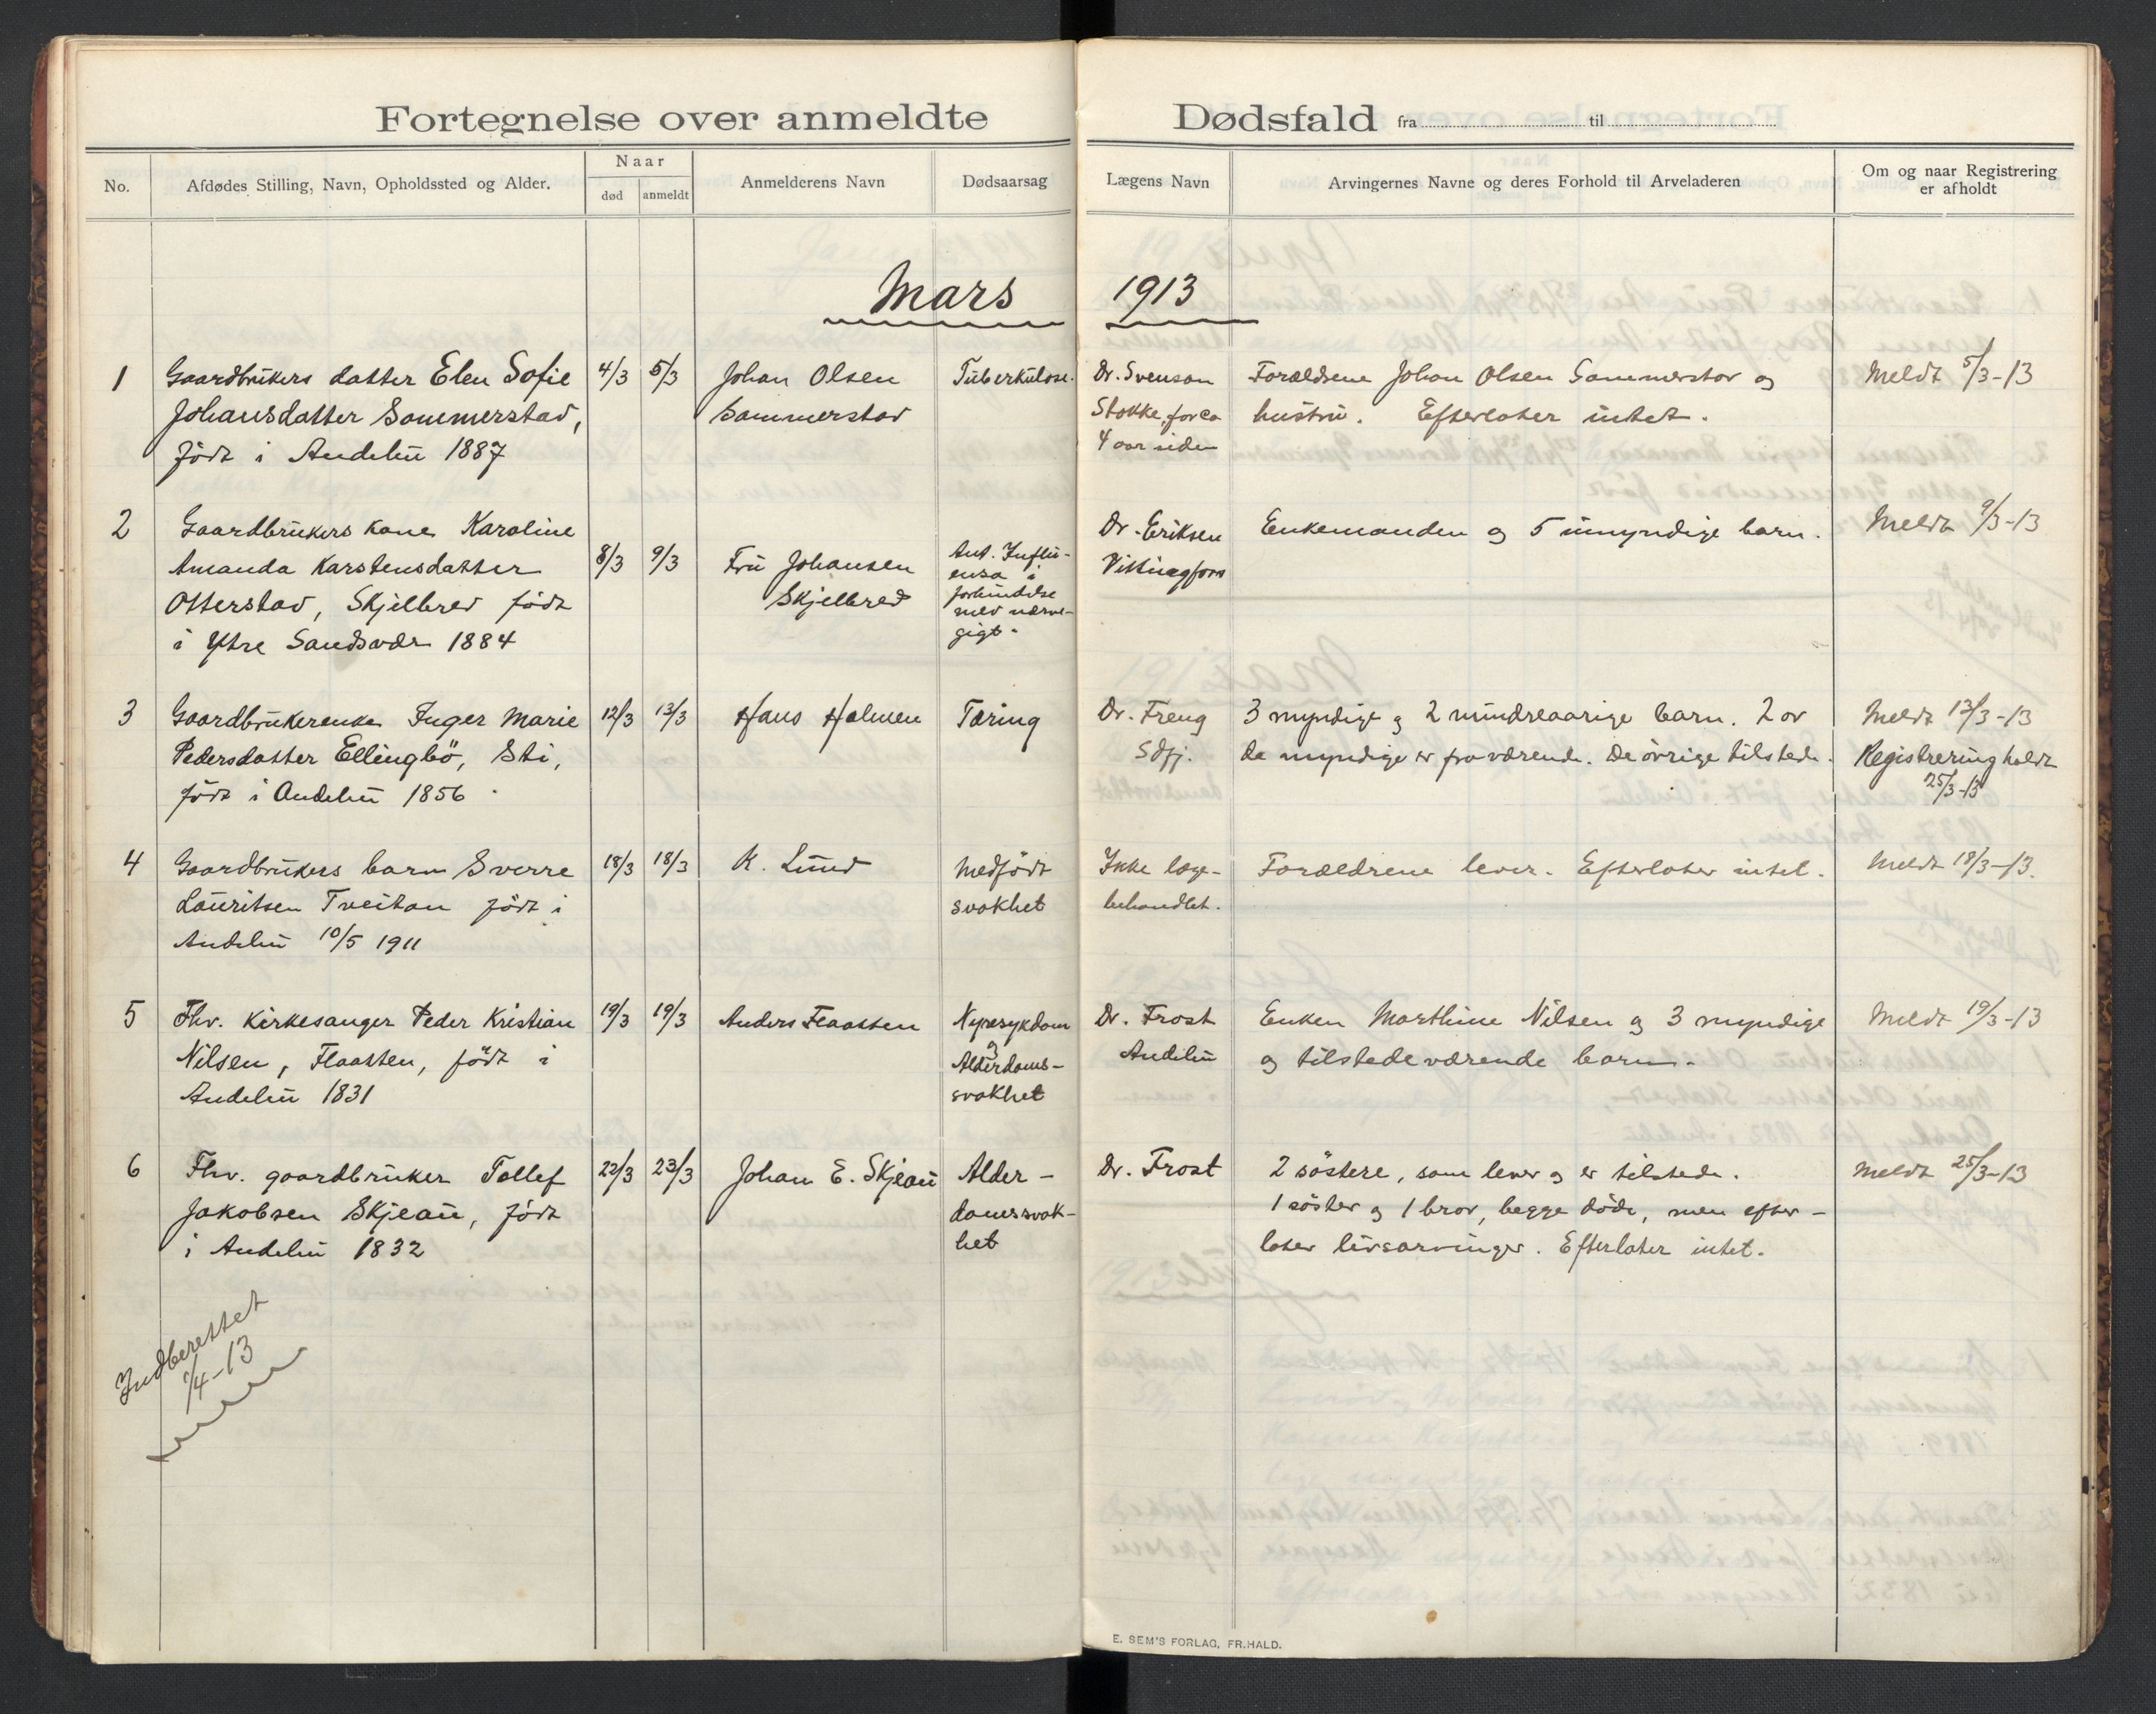 Fortegnelse over anmeldte Dødsfald fra til
No.
Afdødes Stilling, Navn, Opholdssted og Alder.
Naar
død
anmeldt
Anmelderens Navn
Dødsaarsag
Lægens Navn
Arvingernes Navne og deres Forhold til Arveladeren
Om og naar Registrering
er afholdt
Mars 1913
1
Gaardbrukers datter Elen Sofie
Johansdatter Sommerstad,
født i Andebu 1887
4/3
5/3
Johan Olsen
Sommerstad
Tuberkulose.
Dr. Svenson
Stokke, for ca
4 aar siden
Forældrene Johan Olsen Sommerstad og
hustru. Efterlater intet.
Meldt 5/3-13
2
Gaardbrukers kone Karoline
Amanda Karstensdatter
Otterstad, Skjelbred født
i Ytre Sandsvær 1884
8/3
9/3
Fru Johansen
Skjelbred
Ant. Influ-
ensa i
forbindelse
med nerve-
gigt.
Dr. Eriksen
Vittingfoss
Enkemanden og 5 umyndige barn.
Meldt 9/3-13
3
Gaardbrukerenke Inger Marie
Pedersdatter Ellingbö, Sti,
født i Andebu 1856
12/3
13/3
Hans Holmen
Tæring
Dr. Freng
Sdfj.
3 myndige og 2 mindreaarige barn. 2 av
de myndige er fraværende. De övrige tilstede.
Meldt 13/3-13
Registrering holdt
25/3-13
4
Gaardbrukers barn Sverre
Lauritsen Tveitan født i
Andebu 10/5 1911
18/3
18/3
K. Lund
Medfødt
svakhet
Ikke læge-
behandlet.
Forældrene lever. Efterlater intet.
Meldt 18/3-13.
5
Fhv. Kirkesanger Peder Kristian
Nilsen, Flaatten, født i
Andebu 1831
19/3
19/3
Anders Flaatten
Nyresykdom
og
Alderdoms-
svakhet
Dr. Frost
Andebu
Enken Marthine Nilsen og 3 myndige
og tilstedeværende barn.
Meldt 19/3-13
6
Fhv. gaardbruker Tollef
Jakobsen Skjeau, født
i Andebu 1832
22/3
23/3
Johan E. Skjeau
Alder-
domssvak-
het
Dr. Frost
2 söstere, som lever og er tilstede.
1 söster og 1 bror, begge döde, men efter-
later livsarvinger. Efterlater intet.
Meldt 25/3-13
Indberettet
1/4-13
E. SEM'S FORLAG, FR.HALD.